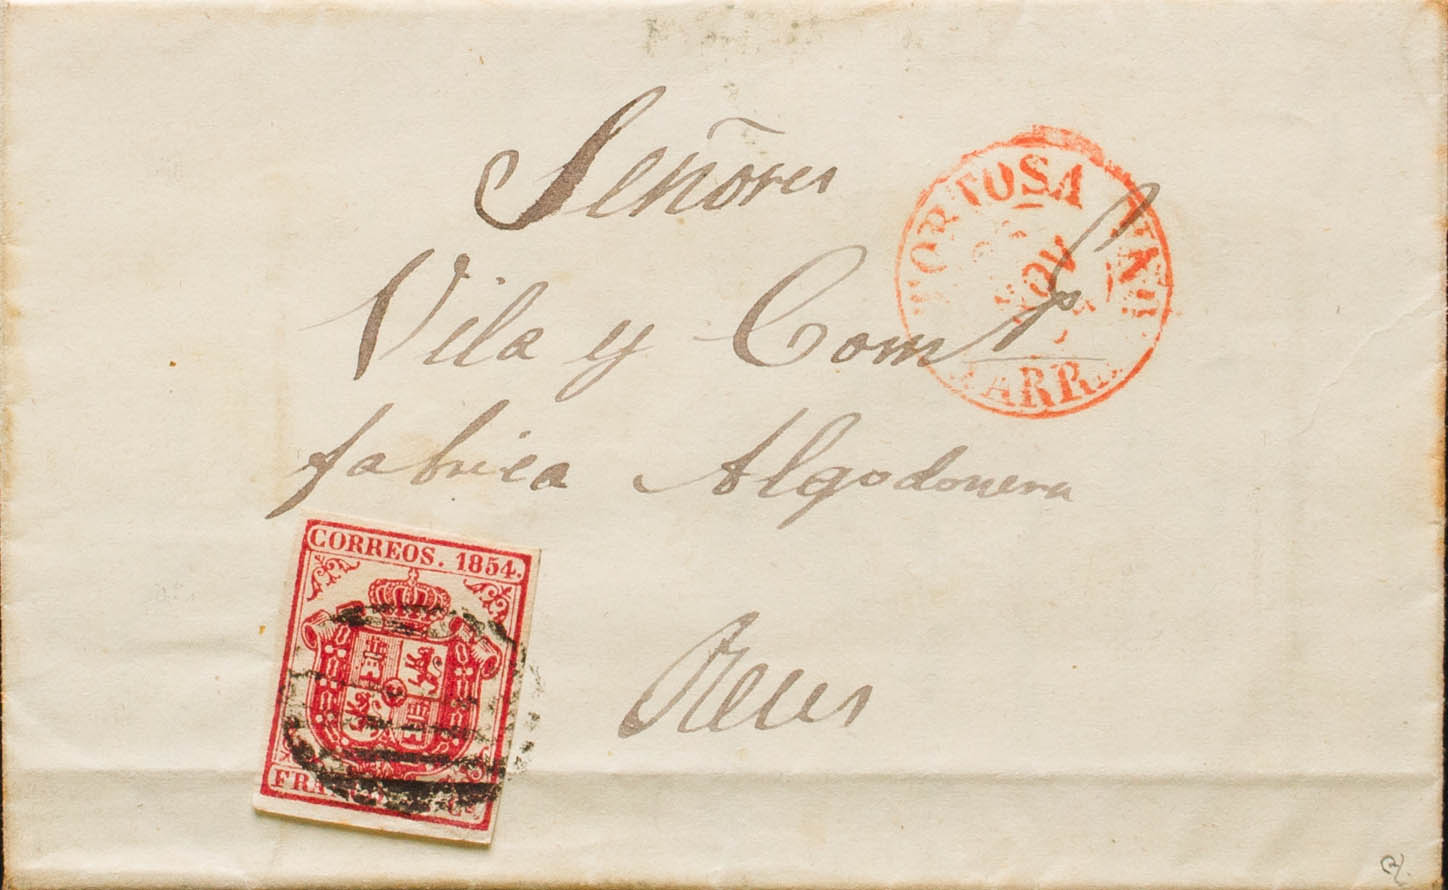 Señores
Vila y Comp.ª
fabrica Algodonera
Reus
TORTOSA
NOV
TARRA
CORREOS. 1854.